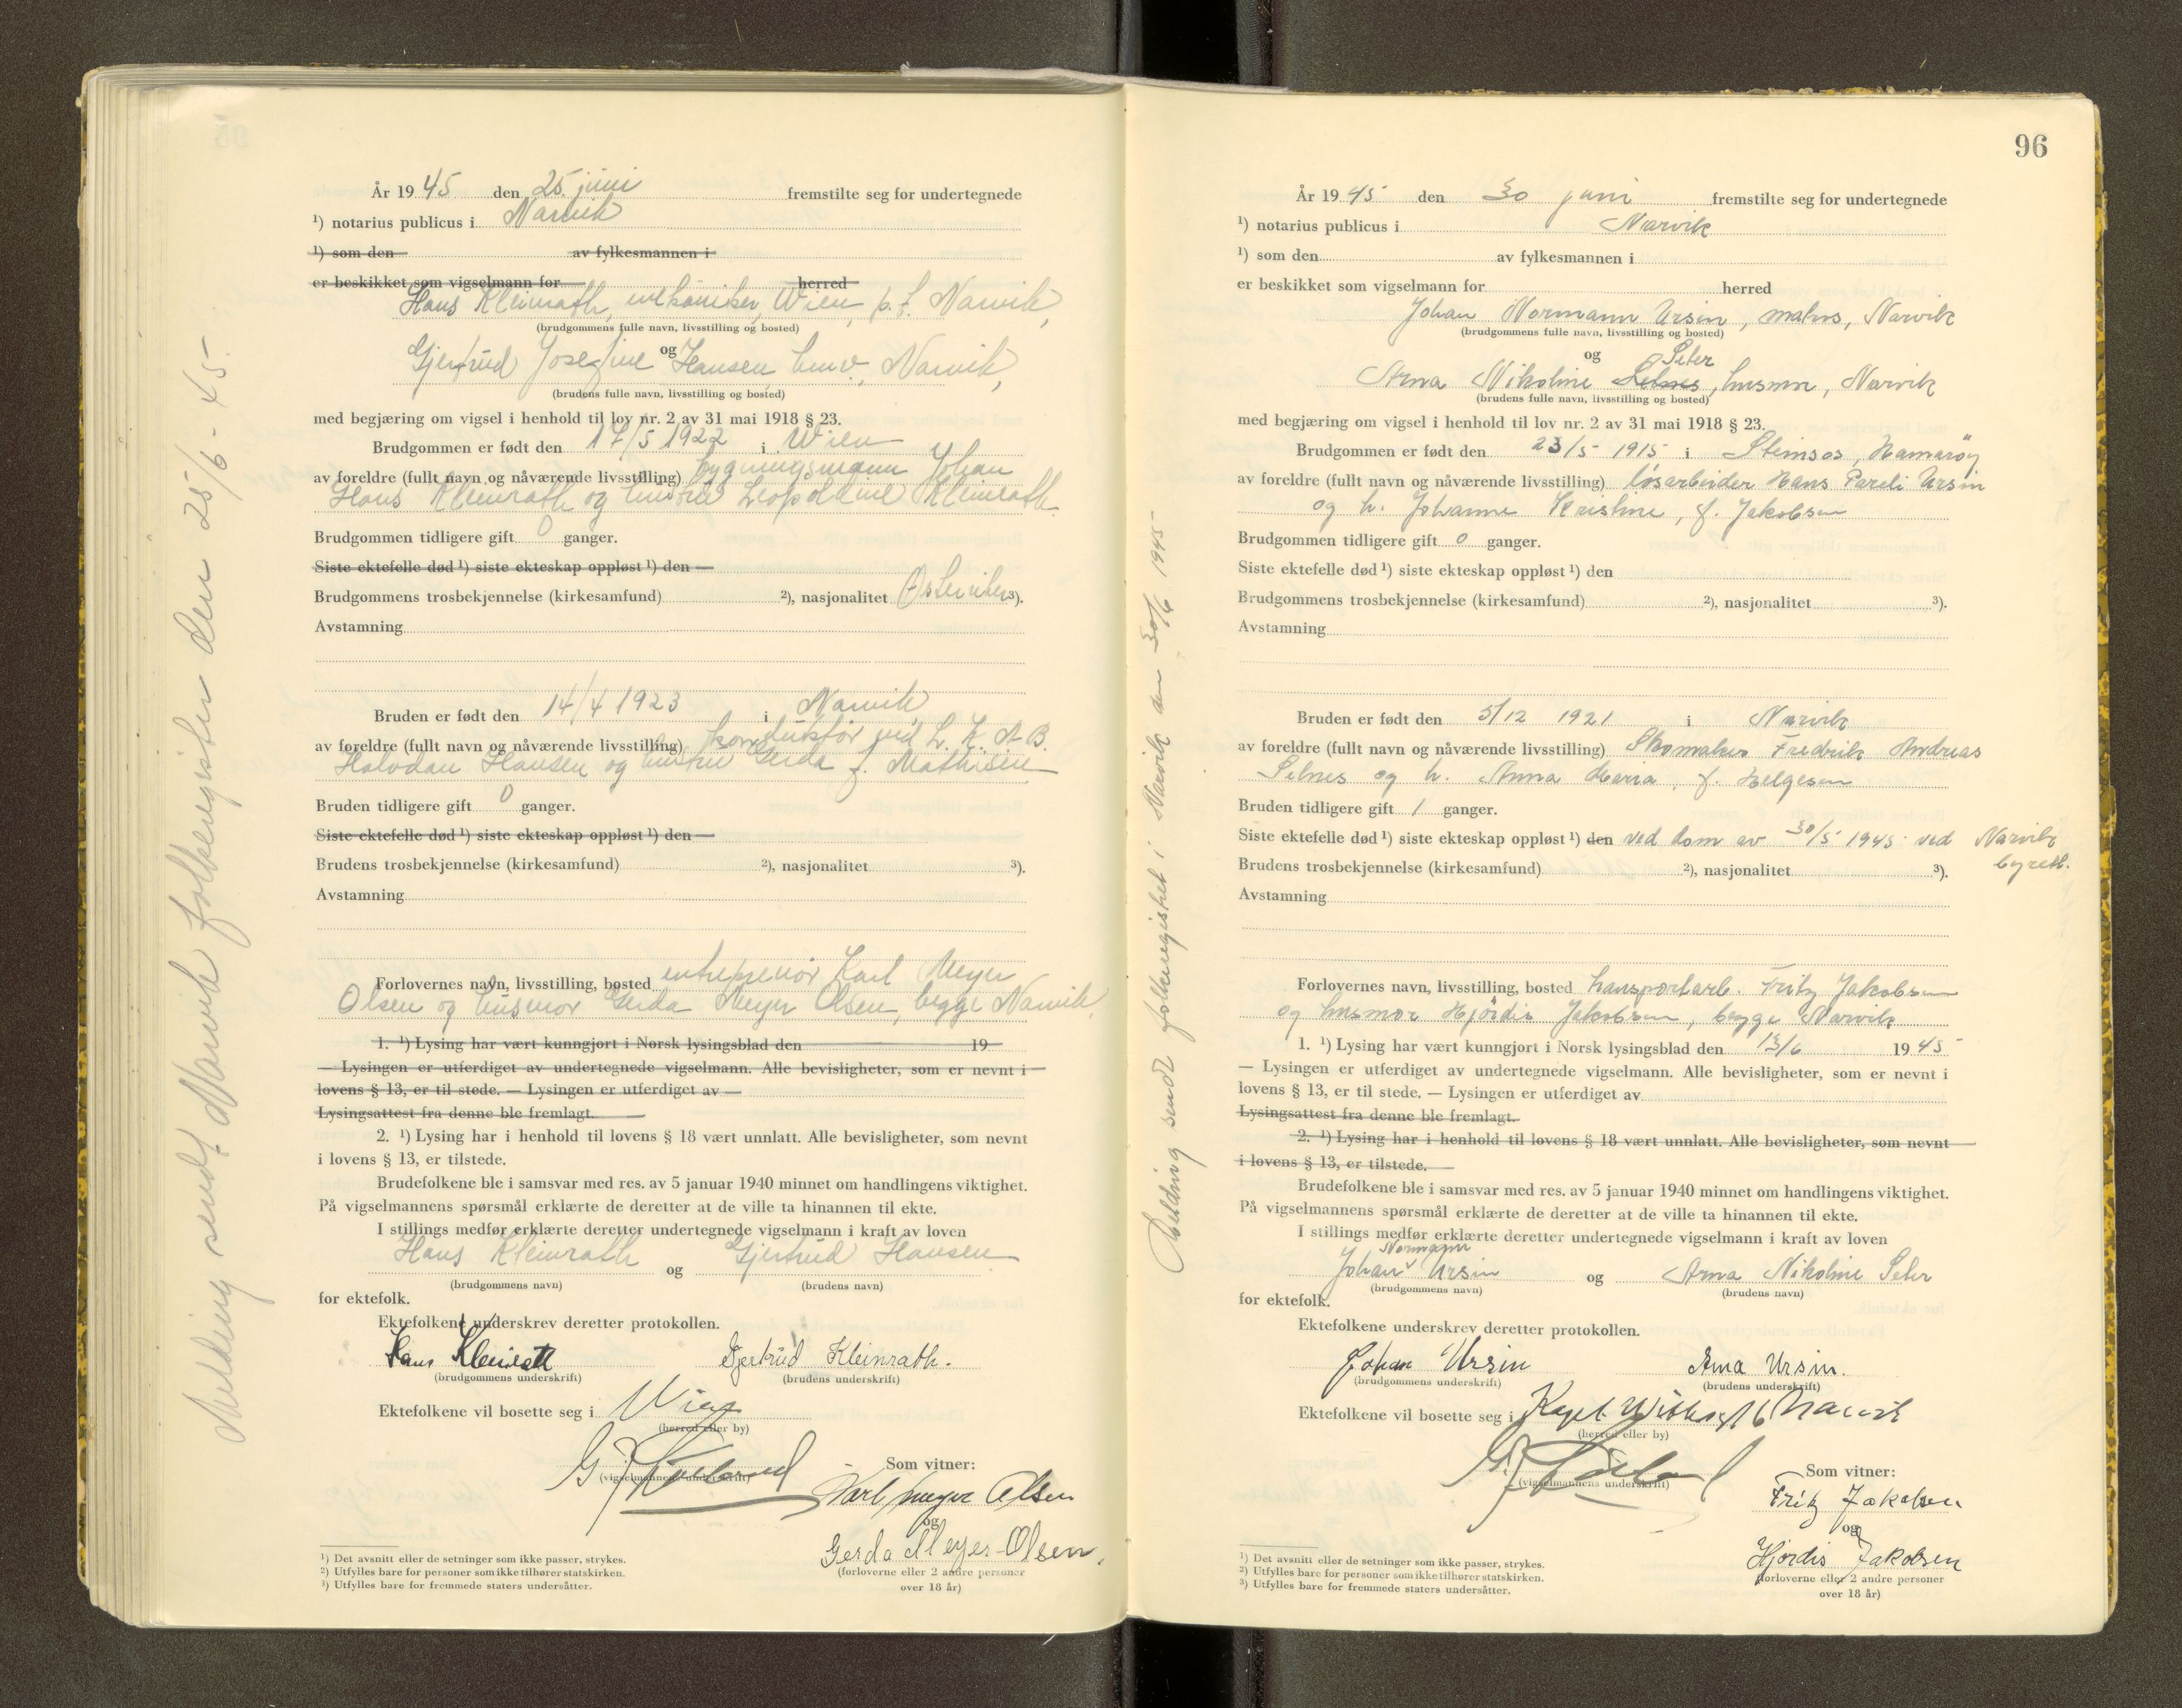 År 19 45 den 25. juni fremstilte seg for undertegnede
¹) notarius publicus i Narvik
¹) som den av fylkesmannen i
er beskikket som vigselmann for herred
Hans Kleinrath, mekaniker, Wien, p.t. Narvik,
(brudgommens fulle navn, livsstilling og bosted)
og
Gjertrud Josefine Hansen, Narvik,
(brudens fulle navn, livsstilling og bosted)
med begjæring om vigsel i henhold til lov nr. 2 av 31 mai 1918 § 23.
Brudgommen er født den 17/5 1922 i Wien
av foreldre (fullt navn og nåværende livsstilling) bygningsmann Johan
Hans Kleinrath og hustru Leopoldine Kleinrath
Brudgommen tidligere gift 0 ganger.
Siste ektefelle død ¹) siste ekteskap oppløst ¹) den
Brudgommens trosbekjennelse (kirkesamfund) ²), nasjonalitet Østerriker ³).
Avstamning
Bruden er født den 14/4 1923 i Narvik
av foreldre (fullt navn og nåværende livsstilling) konduktør ved L.K.A.B.
Halvdan Hansen og hustru Gerda f. Mathisen
Bruden tidligere gift 0 ganger.
Siste ektefelle død ¹) siste ekteskap oppløst ¹) den
Brudens trosbekjennelse (kirkesamfund) ²), nasjonalitet ³).
Avstamning
Forlovernes navn, livsstilling, bosted entreprenør Karl Meyer
Olsen og husmor Gerda Meyer Olsen, begge Narvik.
1. ¹) Lysing har vært kunngjort i Norsk lysingsblad den 19
— Lysingen er utferdiget av undertegnede vigselmann. Alle bevisligheter, som er nevnt i
lovens § 13, er til stede. — Lysingen er utferdiget av
Lysingsattest fra denne ble fremlagt.
2. ¹) Lysing har i henhold til lovens § 18 vært unnlatt. Alle bevisligheter, som nevnt
i lovens § 13, er tilstede.
Brudefolkene ble i samsvar med res. av 5 januar 1940 minnet om handlingens viktighet.
På vigselmannens spørsmål erklærte de deretter at de ville ta hinannen til ekte.
I stillings medfør erklærte deretter undertegnede vigselmann i kraft av loven
Hans Kleinrath og Gjertrud Hansen
(brudgommens navn) (brudens navn)
for ektefolk.
Ektefolkene underskrev deretter protokollen.
Hans Kleinrath Gjertrud Kleinrath.
(brudgommens underskrift) (brudens underskrift)
Ektefolkene vil bosette seg i Wien
(herred eller by)
(vigselmannens underskrift)
Som vitner:
Karl Meyer Olsen
og
Gerda Meyer-Olsen.
(forloverne eller 2 andre personer
over 18 år)
¹) Det avsnitt eller de setninger som ikke passer, strykes.
²) Utfylles bare for personer som ikke tilhører statskirken.
³) Utfylles bare for fremmede staters undersåtter.
Melding sendt Narvik folkeregister den 25/6-45.
96
År 19 45 den 30 juni fremstilte seg for undertegnede
¹) notarius publicus i Narvik
¹) som den av fylkesmannen i
er beskikket som vigselmann for herred
Johan Normann Ursin, maler, Narvik
(brudgommens fulle navn, livsstilling og bosted)
og
Seter
Arna Nikoline Selnes, husmor, Narvik
(brudens fulle navn, livsstilling og bosted)
med begjæring om vigsel i henhold til lov nr. 2 av 31 mai 1918 § 23.
Brudgommen er født den 23/5 1915 i Steinsos, Hamarøy
av foreldre (fullt navn og nåværende livsstilling) løsarbeider Hans Pareli Ursin
og h. Johanne Kristine, f. Jakobsen
Brudgommen tidligere gift 0 ganger.
Siste ektefelle død ¹) siste ekteskap oppløst ¹) den
Brudgommens trosbekjennelse (kirkesamfund) ²), nasjonalitet ³).
Avstamning
Bruden er født den 5/12 1921 i Narvik
av foreldre (fullt navn og nåværende livsstilling) Skomaker Fredrik Andreas
Selnes og h. Anna Maria, f. Helgesen
Bruden tidligere gift 1 ganger.
Siste ektefelle død ¹) siste ekteskap oppløst ¹) den ved dom av 30/5 1945 ved Narvik
byrett.
Brudens trosbekjennelse (kirkesamfund) ²), nasjonalitet ³).
Avstamning
Forlovernes navn, livsstilling, bosted transportarb. Fritz Jakobsen
og husmor Hjørdis Jakobsen, begge Narvik
1. ¹) Lysing har vært kunngjort i Norsk lysingsblad den 13/6 19 45
— Lysingen er utferdiget av undertegnede vigselmann. Alle bevisligheter, som er nevnt i
lovens § 13, er til stede. — Lysingen er utferdiget av
Lysingsattest fra denne ble fremlagt.
2. ¹) Lysing har i henhold til lovens § 18 vært unnlatt. Alle bevisligheter, som nevnt
i lovens § 13, er tilstede.
Brudefolkene ble i samsvar med res. av 5 januar 1940 minnet om handlingens viktighet.
På vigselmannens spørsmål erklærte de deretter at de ville ta hinannen til ekte.
I stillings medfør erklærte deretter undertegnede vigselmann i kraft av loven
Normann
Johan Ursin og Arna Nikoline Seter
(brudgommens navn) (brudens navn)
for ektefolk.
Ektefolkene underskrev deretter protokollen.
Johan Ursin Arna Ursin.
(brudgommens underskrift) (brudens underskrift)
Ektefolkene vil bosette seg i Narvik
(herred eller by)
(vigselmannens underskrift)
Som vitner:
Fritz Jakobsen
og
Hjordis Jakobsen
(forloverne eller 2 andre personer
over 18 år)
¹) Det avsnitt eller de setninger som ikke passer, strykes.
²) Utfylles bare for personer som ikke tilhører statskirken.
³) Utfylles bare for fremmede staters undersåtter.
Melding sendt folkeregistret i Narvik den 30/6 1945